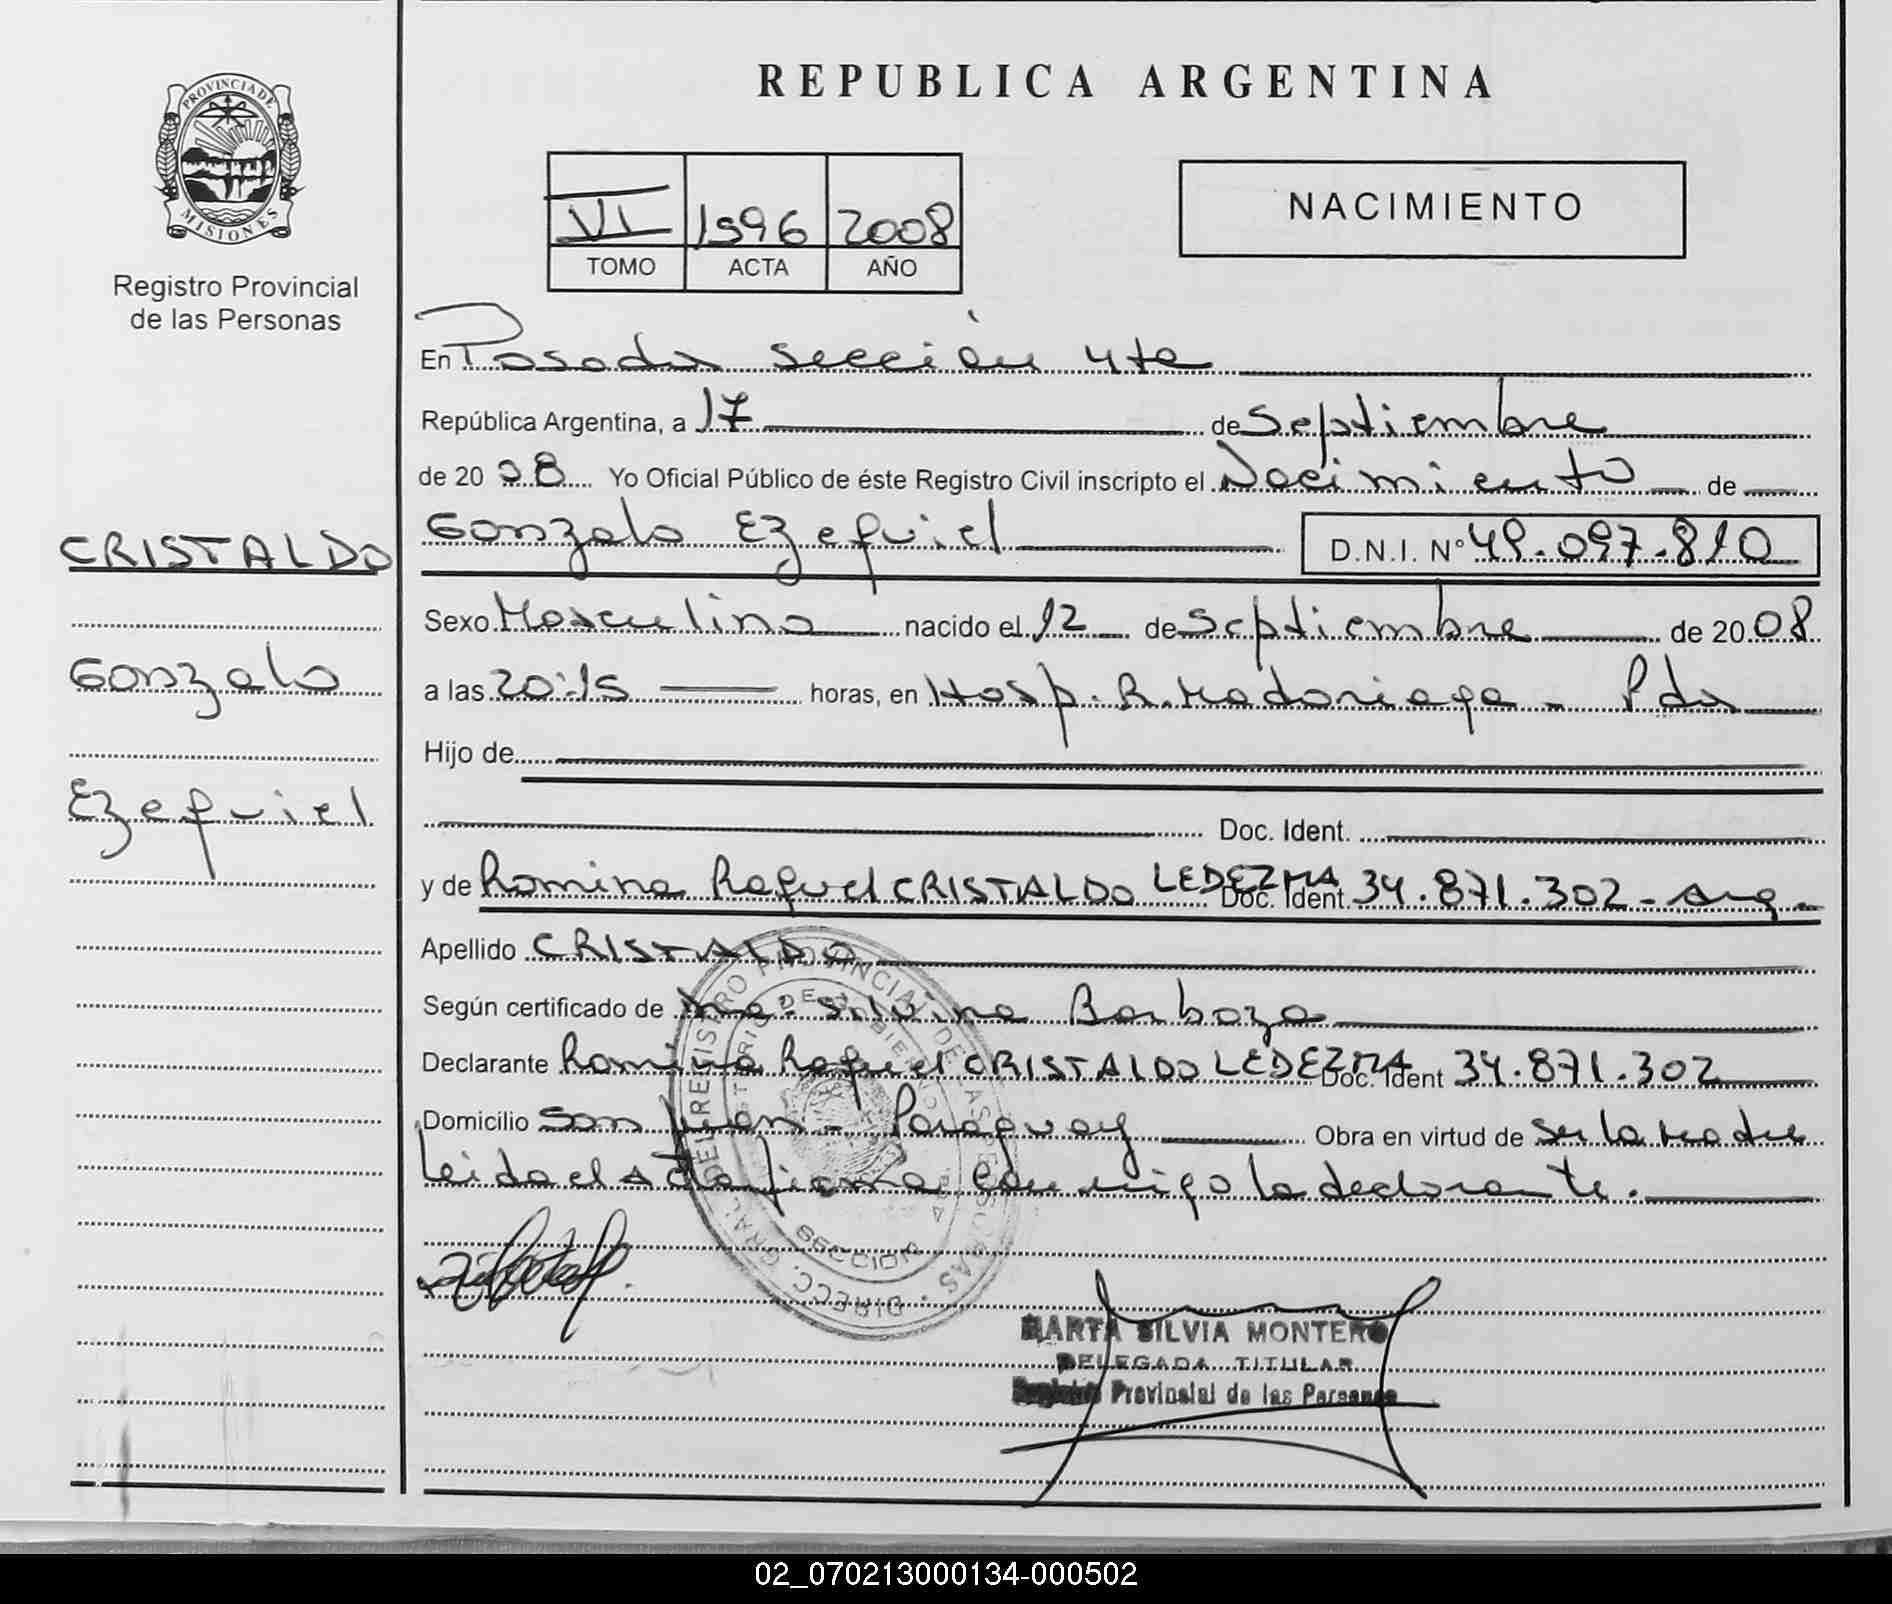 PROVINCIA DE
MISIONES
Registro Provincial
de las Personas
CRISTALDO
Gonzalo
Ezequiel
REPUBLICA ARGENTINA
VI 1596 2008
TOMO ACTA AÑO
NACIMIENTO
En Posadas sección 4ta
República Argentina, a 17 de Septiembre
de 2008 Yo Oficial Público de éste Registro Civil inscripto el Nacimiento de
Gonzalo Ezequiel D.N.I. N° 49.097.810
Sexo Masculino nacido el 12 de Septiembre de 2008
a las 20:15 horas, en Hosp. R. Madariaga - Pdas
Hijo de
Doc. Ident.
y de Romina Raquel CRISTALDO LEDEZMA Doc. Ident. 34.871.302 - Arg -
Apellido CRISTALDO
Según certificado de Silvina Barboza
Declarante Romina Raquel CRISTALDO LEDEZMA Doc. Ident 34.871.302
Domicilio San Juan - Paraguay Obra en virtud de ser la madre
Leida el Acta firma conmigo la declarante.
MARTA SILVIA MONTERO
DELEGADA TITULAR
Registro Provincial de las Personas
02_070213000134-000502